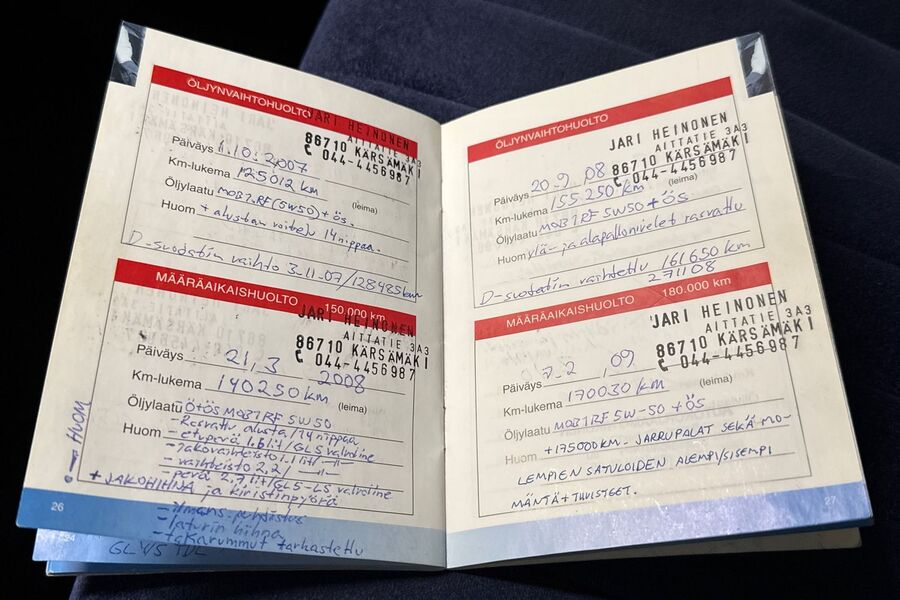 ÖLJYNVAIHTOHUOLTO
JARI HEINONEN
AITTATIE 3A3
86710 KÄRSÄMÄKI
044-4456987
Päiväys 1.10.2007
Km-lukema 125012 km
(leima)
Öljylaatu MOB1 RF (5W50) + ös.
Huom + alustan voitelu 14 nippaa.
D-suodatin vaihto 3.11.07/128485 km
MÄÄRÄAIKAISHUOLTO 150.000 km
JARI HEINONEN
AITTATIE 3A3
86710 KÄRSÄMÄKI
044-4456987
Päiväys 21.3 2008
Km-lukema 140250 km
(leima)
Öljylaatu Ö+ös MOB1 RF 5W50
- Rasvattu alusta/14 nippaa
Huom - etuperä 1.6 lit/GL5 valvoline
- jakovaihteisto 1.1 lit/
- vaihteisto 2,2/
- perä 2,7 lit/GL5-LS valvoline
HUOM
+ JAKOHIHNA ja kiristinpyörä
- ilmans. puhdistus
- laturin hihna
- takarummut tarkastettu
26
24
ÖLJYNVAIHTOHUOLTO
JARI HEINONEN
AITTATIE 3A3
86710 KÄRSÄMÄKI
044-4456987
Päiväys 20.9.08
Km-lukema 155250 km
(leima)
Öljylaatu MOB1 RF 5W50 + ÖS
Huom ylä- ja alapallonivelet rasvattu
D-suodatin vaihtettu 161650 km
271108
MÄÄRÄAIKAISHUOLTO 180.000 km
JARI HEINONEN
AITTATIE 3A3
86710 KÄRSÄMÄKI
044-4456987
Päiväys 7.2.09
Km-lukema 170030 km
(leima)
Öljylaatu MOB1 RF 5W-50 + ös
Huom +175000 KM. JARRUPALAT SEKÄ MO-
LEMPIEN SATULOIDEN ALEMPI/SISEMPI
MÄNTÄ + TIIVISTEET.
27